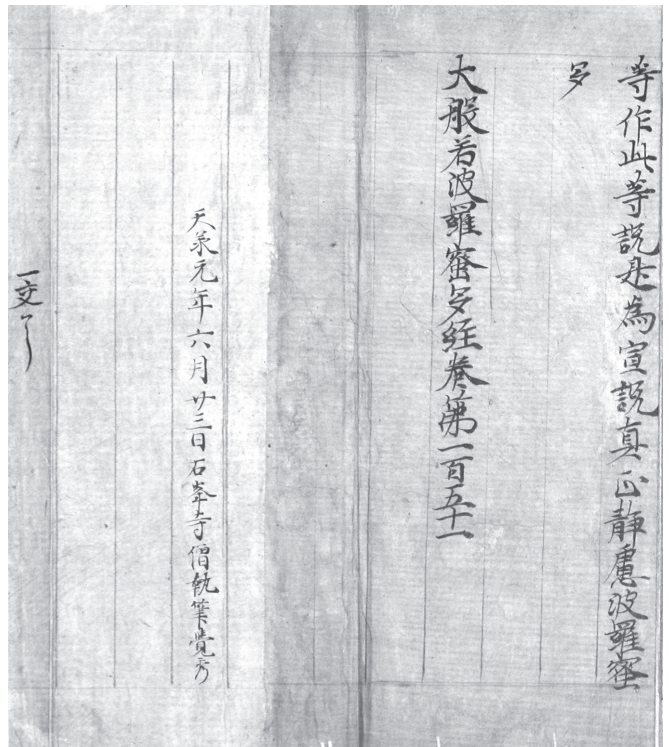 等作此等説是為宣説真正靜慮波羅蜜
多
大般若波羅蜜多經卷第一百五十一
天承元年六月廿三日石峯寺僧執筆覺秀
一交了